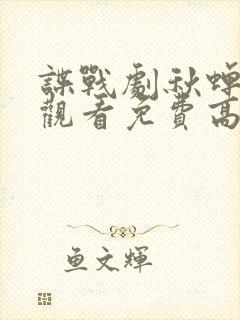 諜戰劇秋蟬
觀看免費高
鱼文輝